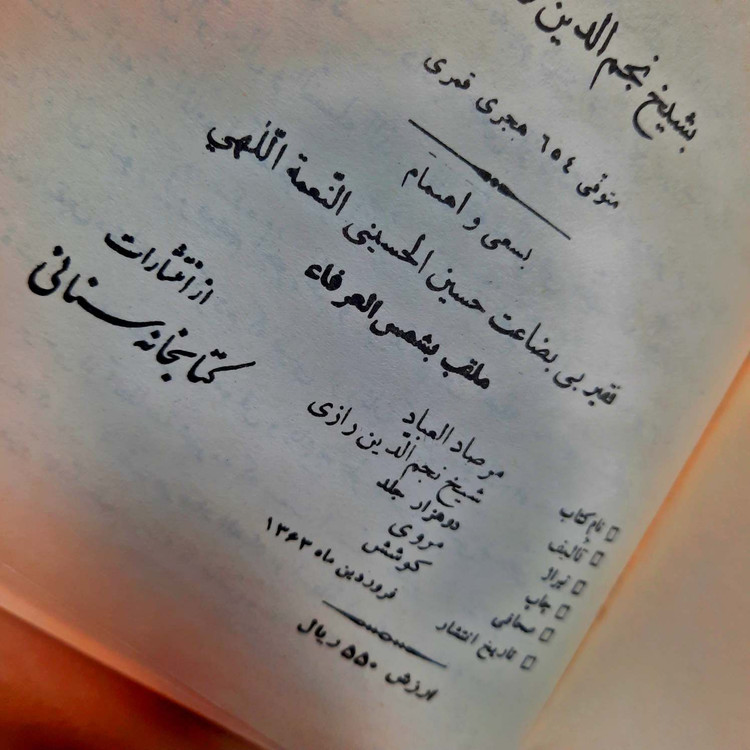 بشیخ نجم الدین
متوفی ٦٥٤ هجری قمری
بسعی و اهتمام
فقیر بی بضاعت حسین الحسینی النّعمة اللّهی
ملقب بشمس العرفاء
از انتشارات
کتابخانه سنائی
□ نام کتاب مرصاد العباد
□ تألیف شیخ نجم الدین رازی
□ تیراژ دوهزار جلد
□ چاپ مروی
□ صحافی کوشش
□ تاریخ انتشار فروردین ماه ۱۳۶۳
ارزش ۵۵۰ ریال